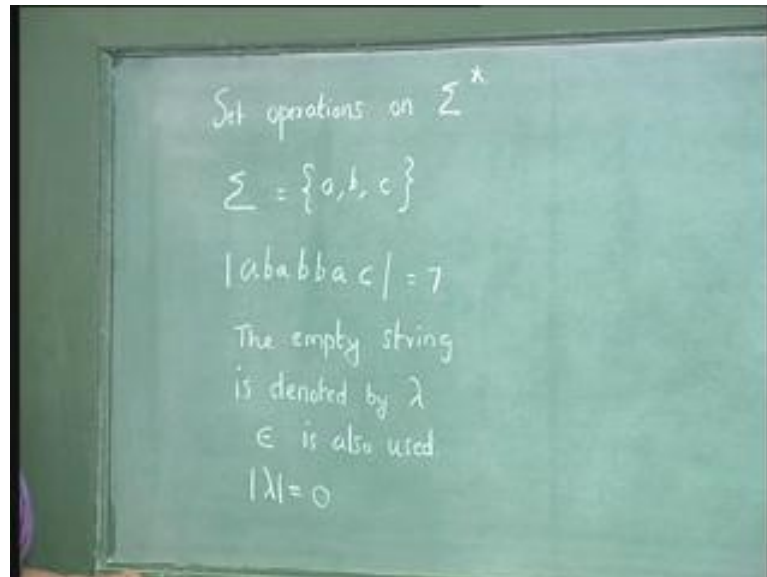 Set operations on Σ*
Σ = {a, b, c}
|ababbac| = 7
The empty string
is denoted by λ
ϵ is also used
|λ| = 0